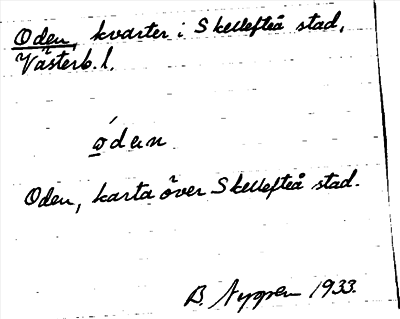 Oden, kvarter i Skellefteå stad,
Västerb. l.
óden
Oden, karta över Skellefteå stad.
B. Nygren 1933.